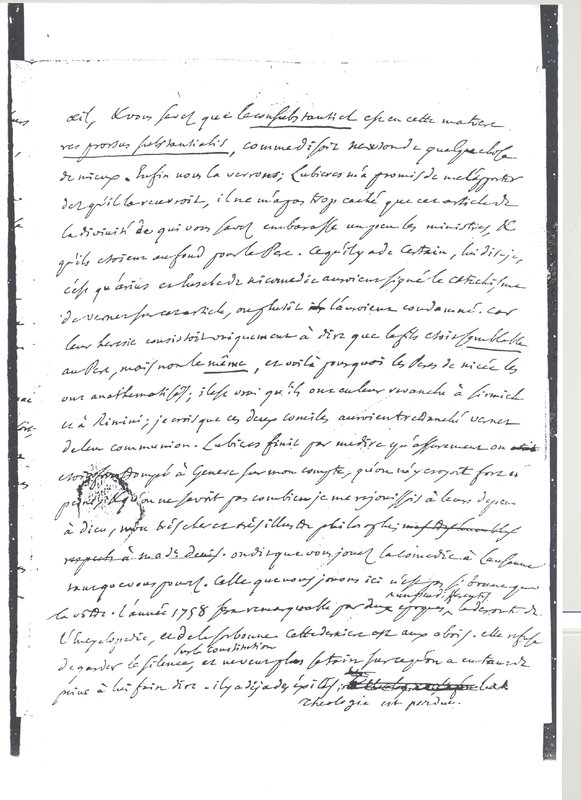 œil, & vous savez que le consubstantiel est en cette matiere
res prorsus substantialis, comme disoit newton de quelque chose
de mieux. Enfin nous la verrons; Lubieres m'a promis de me l'apporter
dez qu'il la recevroit, il ne m'a pas trop caché que cet article de
la divinité de qui vous savez embarasse un peu les ministres, &
qu'ils etoient au fond pour le Pere. Ce qu'il y a de certain, lui dis-je,
c'est qu'arius et Eusebe de nicomedie auroient signé le catechisme
de vernet sur cet article, ou plutôt l'auroient condamné. car
leur heresie consistoit uniquement à dire que le fils etoit semblable
au Pere, mais non le même, et voilà pourquoi les Peres de nicée les
ont anathematisés; il est vrai qu'ils ont eu leur revanche à Sirmich
et à Rimini; je crois que ces deux conciles auroient retranché vernet
de leur communion. Lubieres finit par me dire qu'assurement on
etoit trompé à Geneve sur mon compte, qu'on m'y croyoit fort en
peine, & qu'on ne savoit pas combien je me rejouissois à leurs depens
à dieu, mon très cher et très illustre philosophe, mes très humbles
respects à made Denis. on dit que vous jouez la comedie à Lausanne
tant que vous pouvez. Celle que nous jouons ici n'est pas si bonne que
la vôtre. l'année 1758 sera remarquable par deux epoques, la deroute de
l'Encyclopedie, et de la sorbonne. Cette derniere est aux abois. elle refuse
de garder le silence sur la constitution, et ne veut plus se taire sur ce qu'on a eu tant de
peine à lui faire dire. il y a déja des épîtres
theologie est perdue.